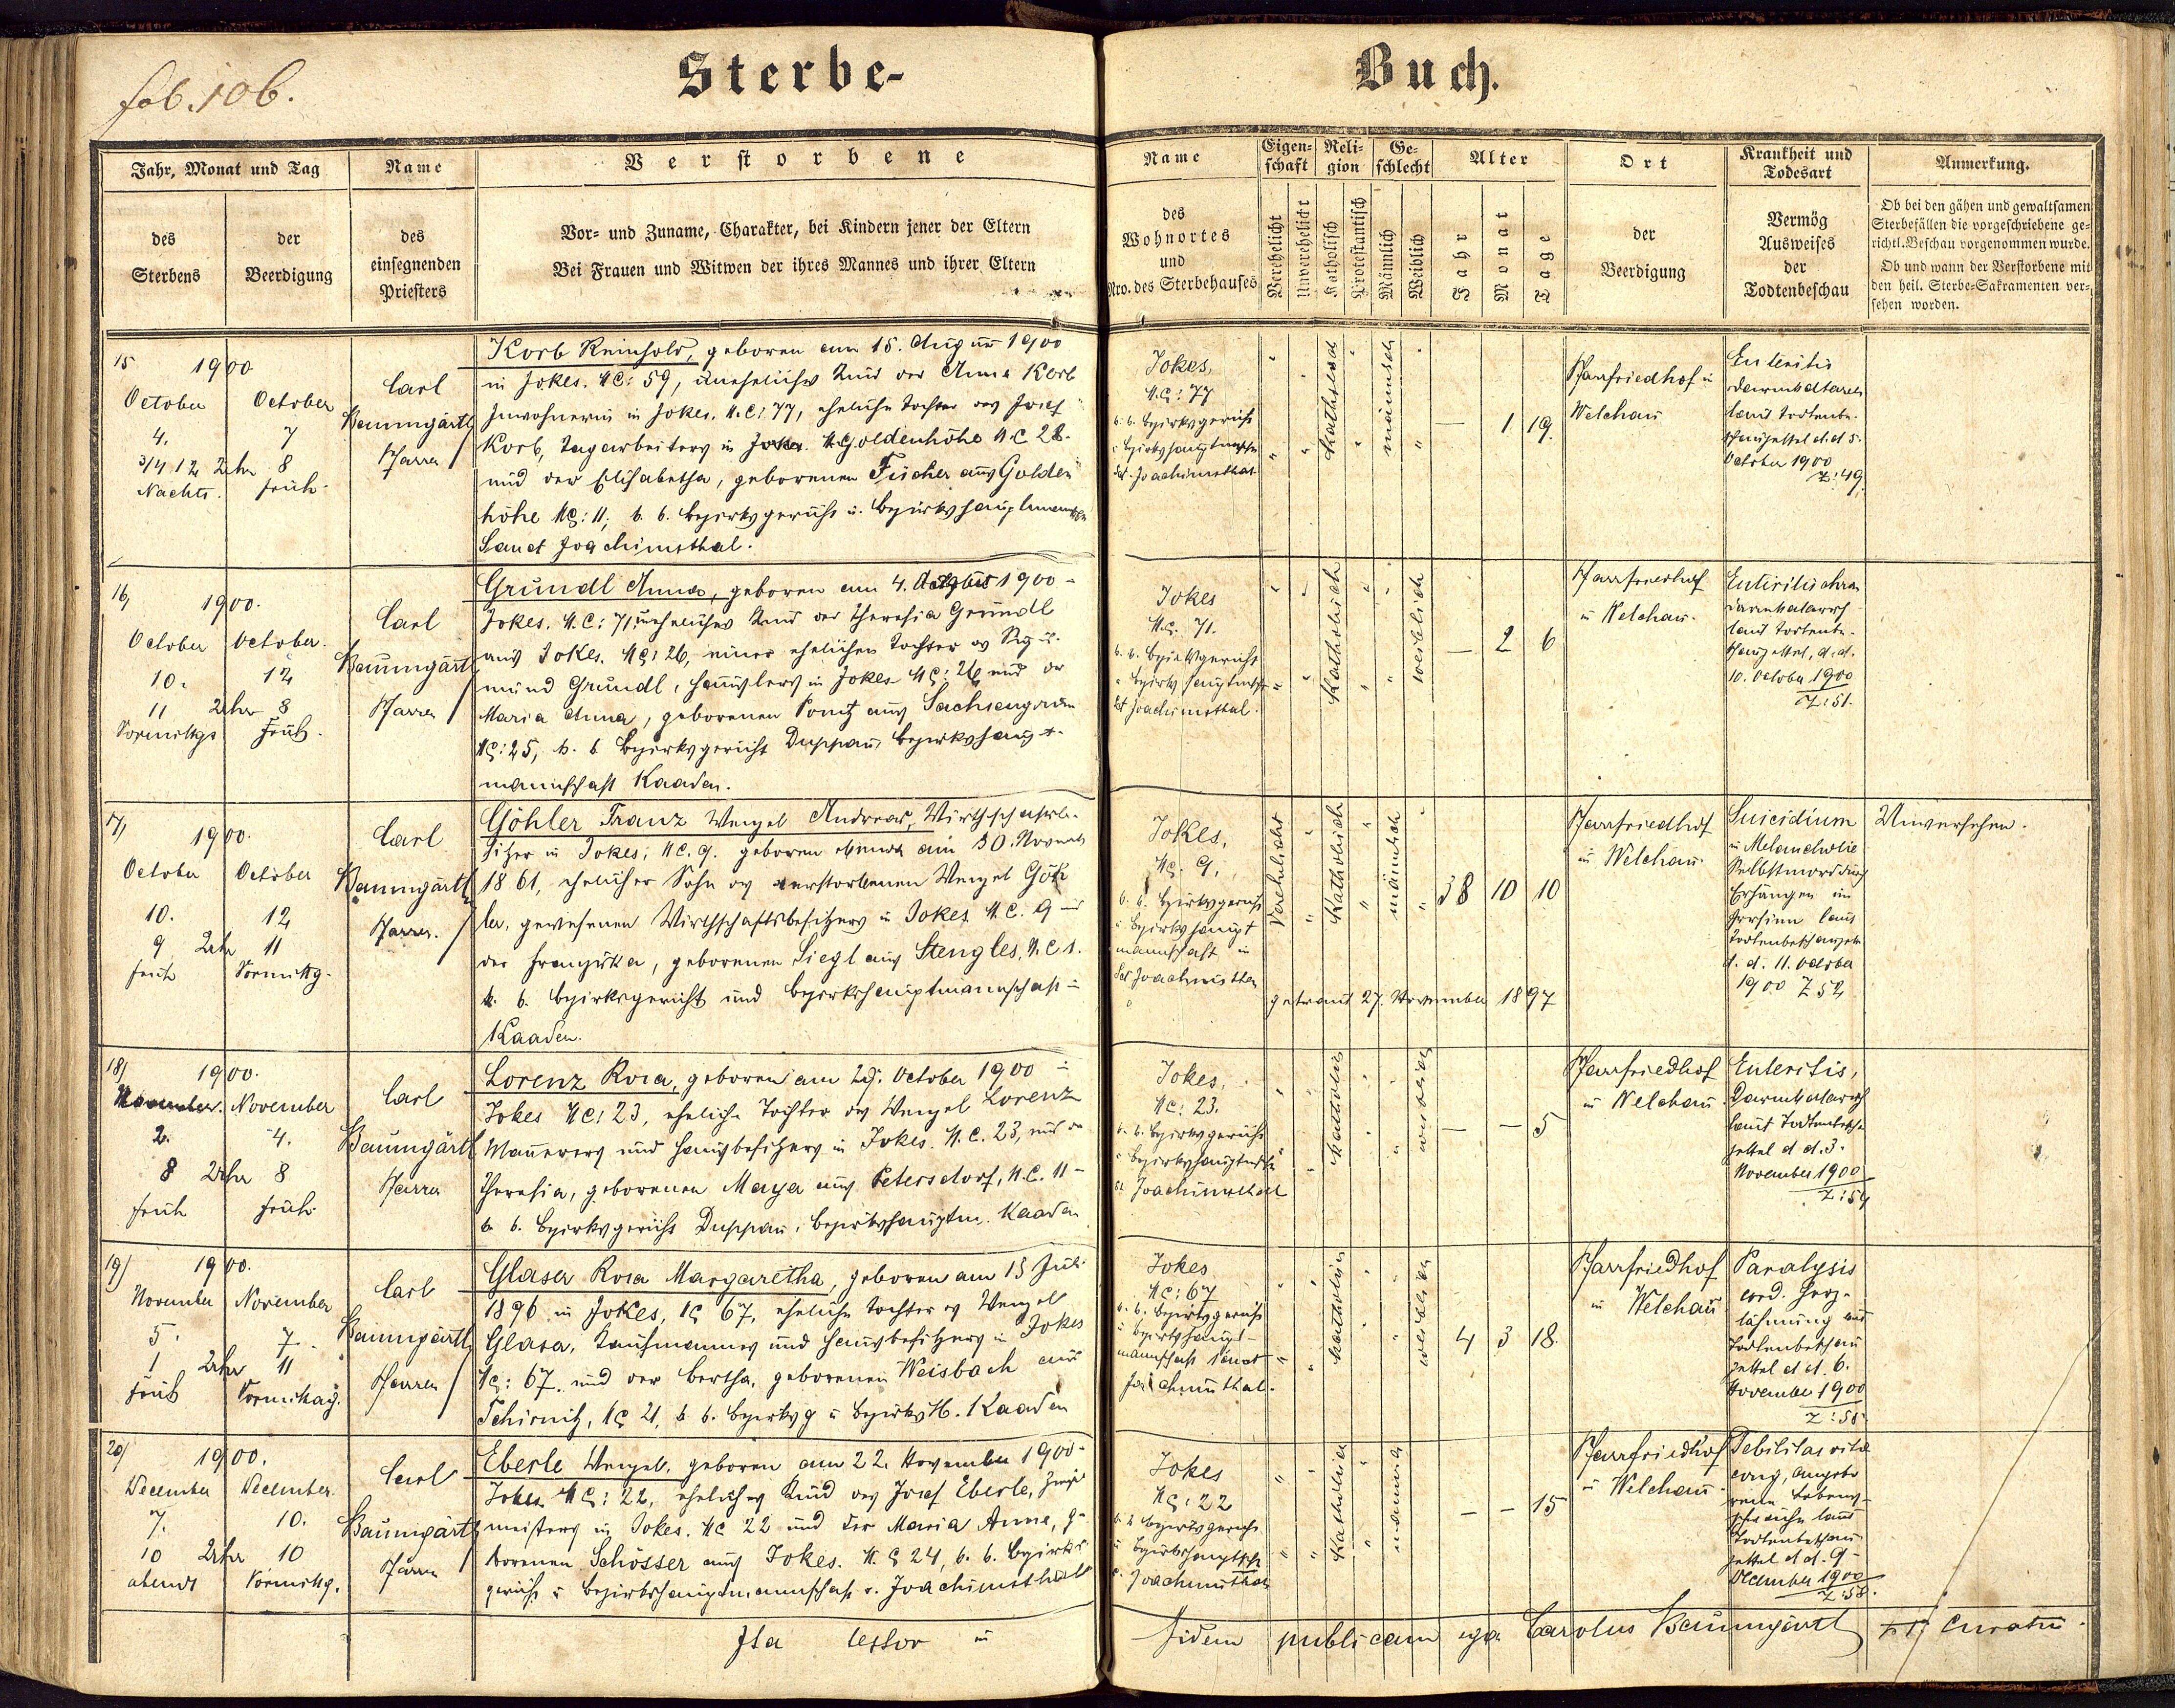 fol. 106.
Sterbe-
Buch.
Jahr, Monat und Tag
des
Sterbens
der
Beerdigung
Name
des
einsegnenden
Priesters
Verstorbene
Vor- und Zuname, Charakter, bei Kindern jener der Eltern
Bei Frauen und Witwen der ihres Mannes und ihrer Eltern
Name
des
Wohnortes
und
Nro. des Sterbehauses
Eigen-
schaft
Verehelicht
Unverehelicht
Reli-
gion
Katholisch
Protestantisch
Ge-
schlecht
Männlich
Weiblich
Alter
Jahr
Monat
Tage
Ort
der
Beerdigung
Krankheit und
Todesart
Vermög
Ausweises
der
Todtenbeschau
Anmerkung.
Ob bei den gähen und gewaltsamen
Sterbefällen die vorgeschriebene ge-
richtl. Beschau vorgenommen wurde.
Ob und wann der Verstorbene mit
den heil. Sterbe-Sakramenten ver-
sehen worden.
15 1900
October October
4. 7
3/4 12 Uhr 8
Nachts. früh.
Carl
Baumgärtl
Pfarrer
Korb Reinhold, geboren am 15. August 1900
in Jokes. NC: 59, uneheliches Kind der Anna Korb
Inwohnerin in Jokes. N.C: 77, eheliche Tochter des Josef
Korb, Tagarbeiters in Goldenhöhe NC 28.
und der Elisabetha, geborenen Fischer aus Golden
höhe NC: 11; k. k. Bezirksgericht u. Bezirkshauptmannschaft
Sanct Joachimsthal.
Jokes,
N.C: 77
k. k. Bezirksgericht
Bezirkshauptmschft
Sct. Joachimsthal
katholisch
männlich
— 1 19.
Pfarrfriedhof in
Welchau
Enteritis
Darmkatarrh
laut Todtenbe-
schauzettel d. d. 5.
October 1900
Z: 49.
16, 1900.
October October.
10. 12
11 Uhr 8
Vormittgs Früh.
Carl
Baumgärtl
Pfarrer
Gründl Anna, geboren am 4. August 1900 -
Jokes. N.C: 71, uneheliches Kind der Theresia Gründl
aus Jokes. NC: 26, einer ehelichen Tochter des Sigis-
mund Gründl, Häuslers in Jokes NC: 26 und der
Maria Anna, geborenen aus Sachsengrün
NC: 25, k. k Bezirksgericht Duppau, Bezirkshaupt-
mannschaft Kaaden.
Jokes
N.C. 71.
k. k. Bezirksgericht
Bezirkshauptmschft
Sct Joachimsthal.
katholisch
weiblich
— 2 6
Pfarrfriedhof
in Welchau.
Enteritis chron
Darmkatarrh
laut Todtenbe-
schauzettel, d. d.
10. October 1900
Z: 51.
17, 1900.
October October
10. 12
9 Uhr 11
früh Vormittg.
Carl
Baumgärtl
Pfarrer.
Göhler Franz Wenzel Andreas, Wirthschaftsbe-
sitzer in Jokes, NC. 9. geboren am 30. Novemb
1861, ehelicher Sohn des verstorbenen Wenzel Göh
ler, gewesenen Wirthschaftsbesitzers in Jokes N.C. 9 und
der Franziska, geborenen Siegl aus Stengles, N.C 1.
k. k. Bezirksgericht und Bezirkshauptmannschaft in
Kaaden.
Jokes,
NC. 9,
k. k. Bezirksgericht
Bezirkshaupt
mannschaft in
Sct Joachimsthal
Verehelicht
katholisch
männlich
38 10 10
getraut 27. November 1897
Pfarrfriedhof
in Welchau.
Suicidium
in Melancholie
Selbstmord durch
Erhängen im
Irrsinn laut
Todtenbeschauzet.
d. d. 11. October
1900 Z 52
Unversehen.
18/ 1900.
November. November
2. 4.
8 Uhr 8
früh früh.
Carl
Baumgärtl
Pfarrer
Lorenz Rosa, geboren am 29. October 1900 in
Jokes NC: 23, eheliche Tochter des Wenzel Lorenz
Maurers und Hausbesitzers in Jokes. N.C. 23, und der
Theresia, geborenen Maya aus Petersdorf, N.C. 11 -
k. k. Bezirksgericht Duppau, Bezirkshauptm. Kaaden
Jokes,
NC: 23.
k. k. Bezirksgericht
Bezirkshauptmschft
St Joachimsthal
katholisch
weiblich
— — 5
Pfarrfriedhof
in Welchau
Enteritis,
Darmkatarrh
laut Todtenbesch
zettel d d. 3.
November 1900
Z: 54
19/ 1900.
November November
5. 7.
1 Uhr 11
Früh Vormittag.
Carl
Baumgärtl
Pfarrer
Glaser Rosa Margaretha, geboren am 15 Juli
1896 in Jokes, NC 67, eheliche Tochter des Wenzel
Glaser, Kaufmannes und Hausbesitzers in Jokes
NC: 67. und der Bertha, geborenen Weisbach aus
Tschirnitz, NC 21, k. k. Bezirksg u Bezirks H. Kaaden
Jokes
NC: 67
k. k. Bezirksgericht
u Bezirkshaupt-
mannschaft Sanct
Joachimsthal.
katholisch
weiblich
4 3 18.
Pfarrfriedhof
in Welchau
Paralysis
cord. Herz-
lähmung laut
Todtenbeschau
zettel d d. 6.
November 1900
Z: 56.
20/ 1900.
December December.
7. 10.
10 Uhr 10
abends Vormittg.
Carl
Baumgärtl
Pfarrer
Eberle Wenzel, geboren am 22. November 1900 -
Jokes NC: 22, eheliches Kind des Josef Eberle,
meisters in Jokes. NC 22 und der Maria Anna, ge-
borenen Schösser aus Jokes. N. C 24, k. k. Bezirks
gericht u Bezirkshauptmannschaft s. Joachimsthal
Jokes
NC: 22
k k Bezirksgericht
u Bezirkshauptsch
Joachimsthal
katholisch
männlich
— — 15
Pfarrfriedhof
in Welchau
Debilitas vitae
cong, angebo
rene Lebens-
schwäche laut
Todtenbeschau
zettel d d. 9 -
December 1900
Z: 58.
Ita testor in
fidem publicam ego Carolus Baumgärtl curatus.